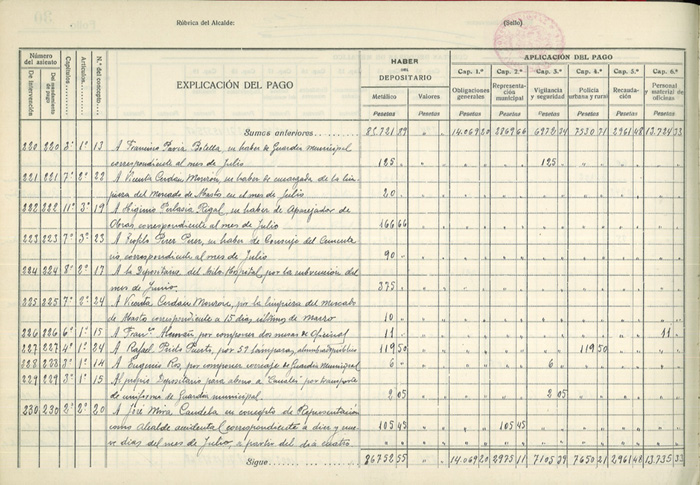 Rúbrica del Alcalde: (Sello)
Número del asiento
De intervención
Del mandamiento de pago
Capítulos
Artículos
N.º del concepto
EXPLICACIÓN DEL PAGO
HABER DEL DEPOSITARIO
Metálico Valores
Pesetas Pesetas
APLICACIÓN DEL PAGO
Cap. 1.º Cap. 2.º Cap. 3.º Cap. 4.º Cap. 5.º Cap. 6.º
Obligaciones generales Representación municipal Vigilancia y seguridad Policía urbana y rural Recaudación Personal y material de oficinas
Pesetas Pesetas Pesetas Pesetas Pesetas Pesetas
Sumas anteriores 14.069 20 2869 66 6972 34 7530 71 2961 48 13.724 33
220 220 3º 1º 13 A Francisco en haber de Guardia municipal
correspondiente al mes de Julio 125 125
221 221 7º 2º 22 A Vicenta Cerdán en haber de encargada de la lim-
pieza del Mercado de Abasto en el mes de Julio 20
222 222 11º 3º 19 A Higinio en haber de Aparejador de
Obras correspondiente al mes de Julio 166 66
223 223 7º 3º 23 A Perez Perez, en haber de Conserje del Cemente-
rio correspondiente al mes de Julio 90
224 224 8º 2º 17 A la Depositaria del Hospital, por la subvención del
mes de Junio 375
225 225 7º 2º 24 A Vicenta Cerdán por la limpieza del Mercado
de Abasto correspondiente a 15 días últimos de Marzo 10
226 226 6º 1º 15 A Fran.co Alemañ por componer dos mesas de Oficina 11 11
227 227 4º 1º 24 A Rafael Prieto Puerta, por 57 lámparas, alumbrado público 119,50 119,50
228 228 3º 1º 14 A Eugenio Ros, por componer de Guardia municipal 6 6
229 229 3º 1º 15 Al propio Depositario para abono a "Canales" por transporte
de uniforme de Guardia municipal 2 05 2 05
230 230 2º 2º 20 A José Mira Candela en concepto de Representación
como Alcalde accidental correspondiente a diez y nue-
ve días del mes de Julio, a partir del día cuatro. 105 45 105 45
Sigue 86752 55 14.069 20 2975 11 7105 39 7650 21 2,961 48 13.735 33